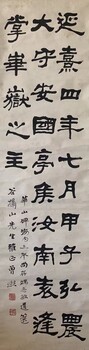 延熹四年七月甲子弘農
大守安國亭侯汝南袁逢
掌華嶽之主
華山碑
山先生 曾熙